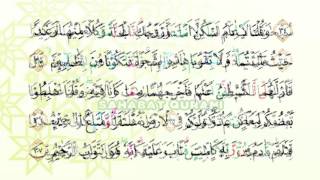 ٣٤ وَقُلْنَا يَٰٓـَٔادَمُ ٱسْكُنْ أَنتَ وَزَوْجُكَ ٱلْجَنَّةَ وَكُلَا مِنْهَا رَغَدًا
حَيْثُ شِئْتُمَا وَلَا تَقْرَبَا هَٰذِهِ ٱلشَّجَرَةَ فَتَكُونَا مِنَ ٱلظَّٰلِمِينَ ٣٥
فَأَزَلَّهُمَا ٱلشَّيْطَٰنُ عَنْهَا فَأَخْرَجَهُمَا مِمَّا كَانَا فِيهِ وَقُلْنَا ٱهْبِطُوا۟
SAHABAT
بَعْضُكُمْ لِبَعْضٍ عَدُوٌّ وَلَكُمْ فِى ٱلْأَرْضِ مُسْتَقَرٌّ وَمَتَٰعٌ إِلَىٰ حِينٍ ٣٦
فَتَلَقَّىٰٓ ءَادَمُ مِن رَّبِّهِۦ كَلِمَٰتٍ فَتَابَ عَلَيْهِ إِنَّهُۥ هُوَ ٱلتَّوَّابُ ٱلرَّحِيمُ ٣٧